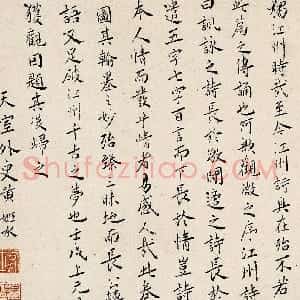 江州時哉至今江州詩具在殆不若
此為之傳誦也何歟微之序江州詩
曰諷詠之詩長於激閒適之詩長於
遣五字七字百言而長於情豈詩
本人情而發于情者易感人哉此卷
圖其翰墨之妙殆臻三昧地而長公
語又足破江州千古之夢也壬戌上元
獲觀因題其後歸
天室外史黃姬水
Shufaziliao.com